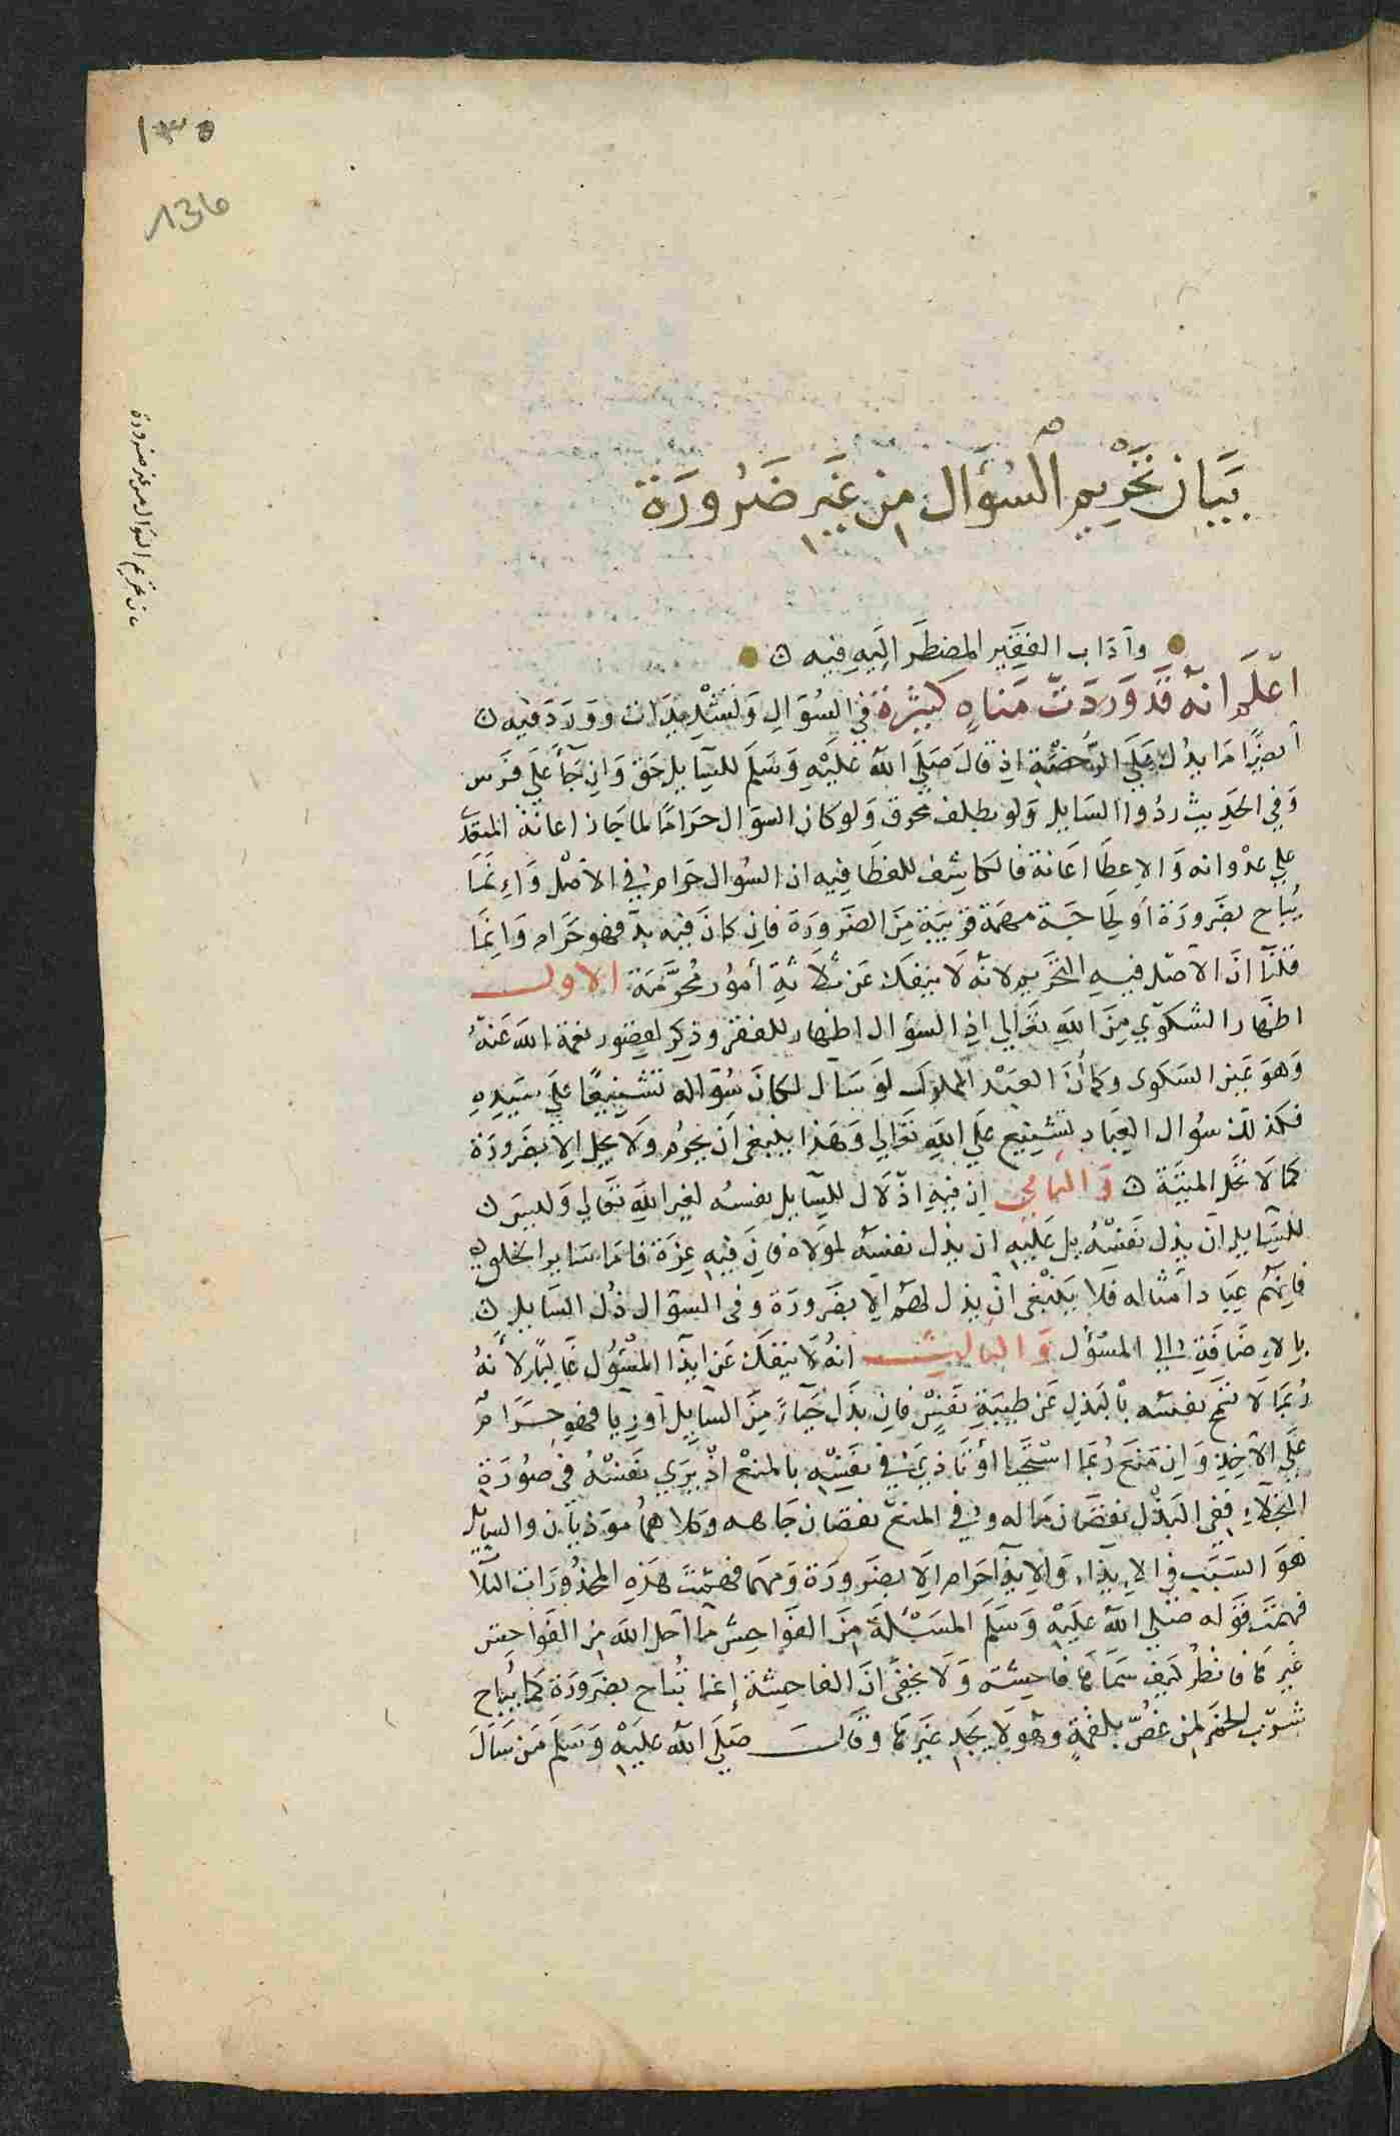 ١٣٥
136
بيان تحريم السؤال من غير ضرورة
بَيَان تَحْرِيم السُؤَال مِن غَير ضَرُورَة
وآداب الفقير المضطر اليه فيه
اعلم انه قد وردت مناه كثيرة في السؤال وتشديدات وورد فيه
ايضا ما يدل على الرخصة اذ قال صلى الله عليه وسلم للسايل حق وان جآ على فرس
وفي الحديث ردوا السايل ولو بظلف محرق ولو كان السؤال حراما لما جاز اعانة المتعدى
على عدوانه والاعطا اعانة فالكاشف للغطا فيه ان السؤال حرام في الاصل وانما
يباح بضرورة او لحاجة مهمة قريبة من الضرورة فان كان فيه بد فهو حرام وانما
قلنا ان الاصل فيه التحريم لانه لا ينفك عن ثلاثة أمور محرمة الاول
اظهار الشكوى من الله تعالى اذ السؤال اظهار للفقر وذكر لقصور نعمة الله عنه
وهو عين الشكوى وكما أن العبد المملوك لو سأل لكان سؤاله تشنيعا على سيده
فكذلك سؤال العباد تشنيع على الله تعالى وهذا ينبغى ان يحرم ولا يحل الا بضرورة
كما لا تحل الميتة والثاني ان فيه اذلال للسايل نفسه لغير الله تعالى وليس
للسايل ان يذل نفسه بل عليه ان يذل نفسه لمولاه فان فيه عزة فاما ساير الخلق
فانهم عباد امثاله فلا ينبغى ان يذل لهم الا بضرورة وفى السؤال ذل السايل
بالاضافة الى المسؤل والثالث انه لا ينفك عن ايذا المسئول غالبا لانه
ربما لا تسمح نفسه بالبذل عن طيبة نفس فان بذل حياءً من السايل او ريا فهو حرام
على الآخذ وان منع ربما استحيا او تاذى في نفسه بالمنع اذ يرى نفسه فى صورة
البخلاء ففى البذل نقصان ماله وفى المنع نقصان جاهه وكلاهما موذيان والسايل
هو السبب في الايذاء والايذآ حرام الا بضرورة ومهما فهمت هذه المحذورات الثلا
فهمت قوله صلى الله عليه وسلم المسئلة من الفواحش ما احل الله من الفواحش
غيرها فانظر كيف سماها فاحشة ولا يخفى ان الفاحشة إنما تباح بضرورة كما يباح
شرب الخمر لمن غص بلقمة وهو لا يجد غيرها وقال صلى الله عليه وسلم من سال